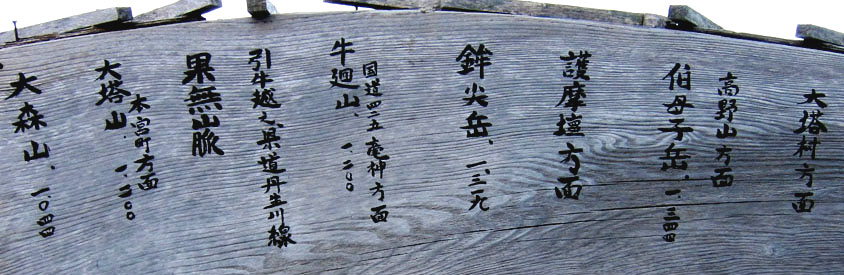 大塔村方面
高野山方面
伯母子岳、一、三四四
護摩壇方面
鉾尖岳、
国道四二五 竜神方面
牛廻山、一、二〇〇
引牛越え県道丹生川線
果無山脈
本宮町方面
大塔山、一、二〇〇
大森山、一〇四四